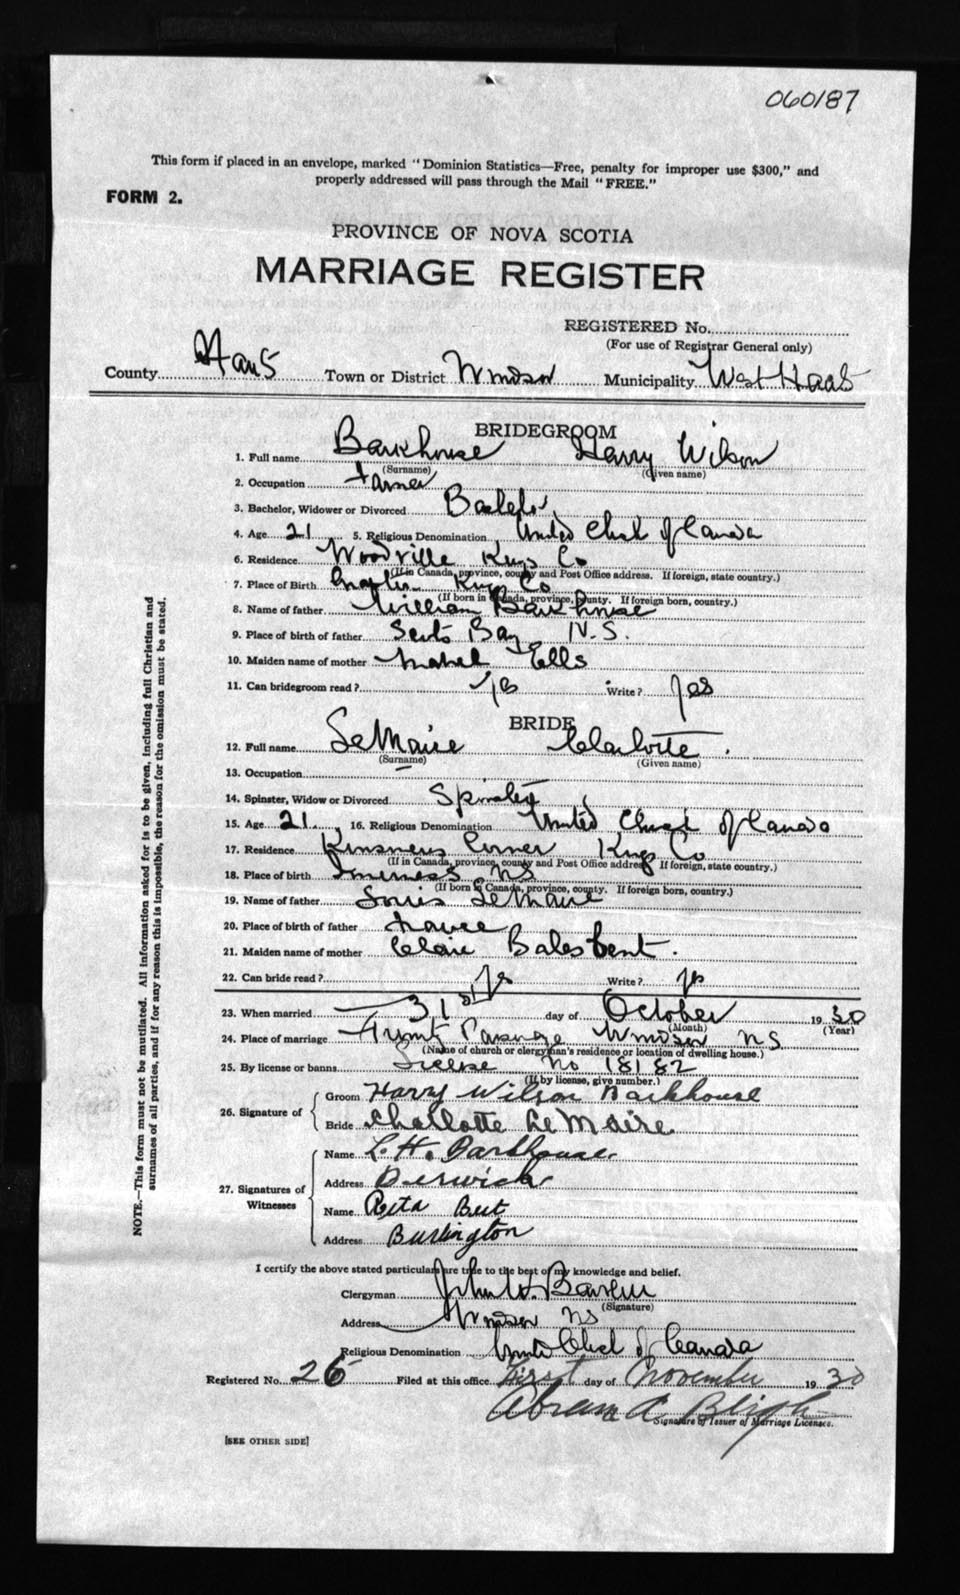 060187
This form if placed in an envelope, marked "Dominion Statistics—Free, penalty for improper use $300," and
properly addressed will pass through the Mail "FREE."
FORM 2.
PROVINCE OF NOVA SCOTIA
MARRIAGE REGISTER
REGISTERED No.
(For use of Registrar General only)
County Hants Town or District Windsor Municipality West Hants
BRIDEGROOM
1. Full name Barkhouse Harry Wilson
(Surname) (Given name)
2. Occupation Farmer
3. Bachelor, Widower or Divorced Bachelor
4. Age 21 5. Religious Denomination United Church of Canada
6. Residence Woodville Kings Co
(If in Canada, province, county and Post Office address. If foreign, state country.)
7. Place of Birth Kings Co
(If born in Canada, province, county. If foreign born, country.)
8. Name of father William Barkhouse
9. Place of birth of father Scots Bay N.S.
10. Maiden name of mother Mabel Ells
11. Can bridegroom read? yes Write? yes
BRIDE
12. Full name LeMaire Charlotte
(Surname) (Given name)
13. Occupation
14. Spinster, Widow or Divorced Spinster
15. Age 21 16. Religious Denomination United Church of Canada
17. Residence Kinsmens Corner Kings Co
(If in Canada, province, county and Post Office address. If foreign, state country.)
18. Place of birth Inverness NS
(If born in Canada, province, county. If foreign born, country.)
19. Name of father Louis LeMaire
20. Place of birth of father France
21. Maiden name of mother Clair
22. Can bride read? yes Write? yes
23. When married 31st day of October 1930
(Month) (Year)
24. Place of marriage Windsor NS
(Name of church or clergyman's residence or location of dwelling house.)
25. By license or banns License No 18182
(If by license, give number.)
26. Signature of
Groom Harry Wilson Barkhouse
Bride Charlotte LeMaire
27. Signatures of Witnesses
Name L. H. Barkhouse
Address Berwick
Name Rita
Address Burlington
I certify the above stated particulars are true to the best of my knowledge and belief.
Clergyman John W.
(Signature)
Address Windsor NS
Religious Denomination United Church of Canada
Registered No. 26 Filed at this office First day of November 1930
Abram A. Bligh
Signature of Issuer of Marriage Licenses.
[SEE OTHER SIDE]
NOTE.—This form must not be mutilated. All information asked for is to be given, including full Christian and
surnames of all parties, and if for any reason this is impossible, the reason for the omission must be stated.